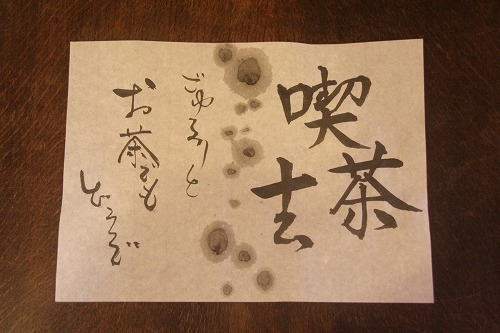 喫茶去
ごゆるりと
お茶でも
どうぞ